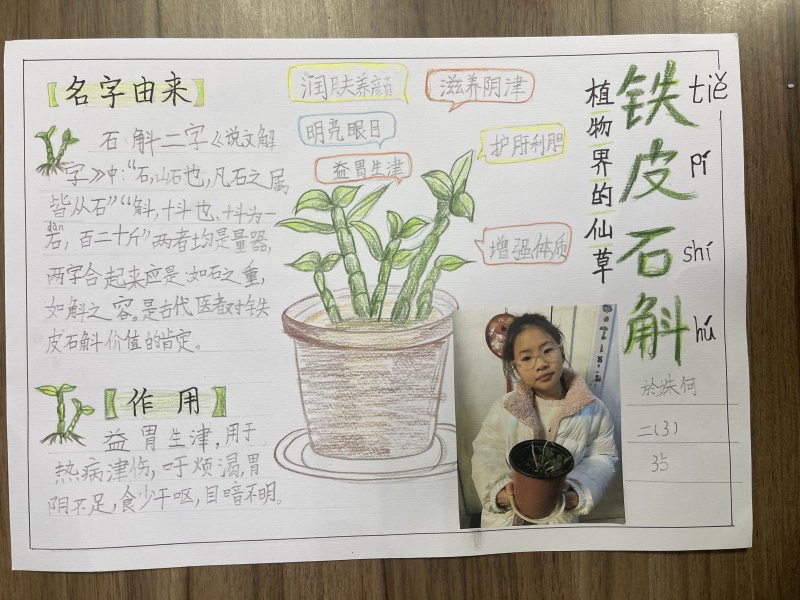 铁皮石斛
tiě pí shí hú
植物界的仙草
【名字由来】
石斛二字《说文解
字》中:“石,山石也,凡石之属
皆从石”“斛,十斗也、十斗为一
dàn
石,百二十斤”两者均是量器,
两字合起来应是“如石之重,
如斛之容。是古代医者对铁
皮石斛价值的肯定。
润肤养颜
滋养阴津
明亮眼目
益胃生津
护肝利胆
增强体质
【作用】
益胃生津,用于
热病津伤,吁烦渴,胃
阴不足,食少干呕,目暗不明。
於姝何
二(3)
35